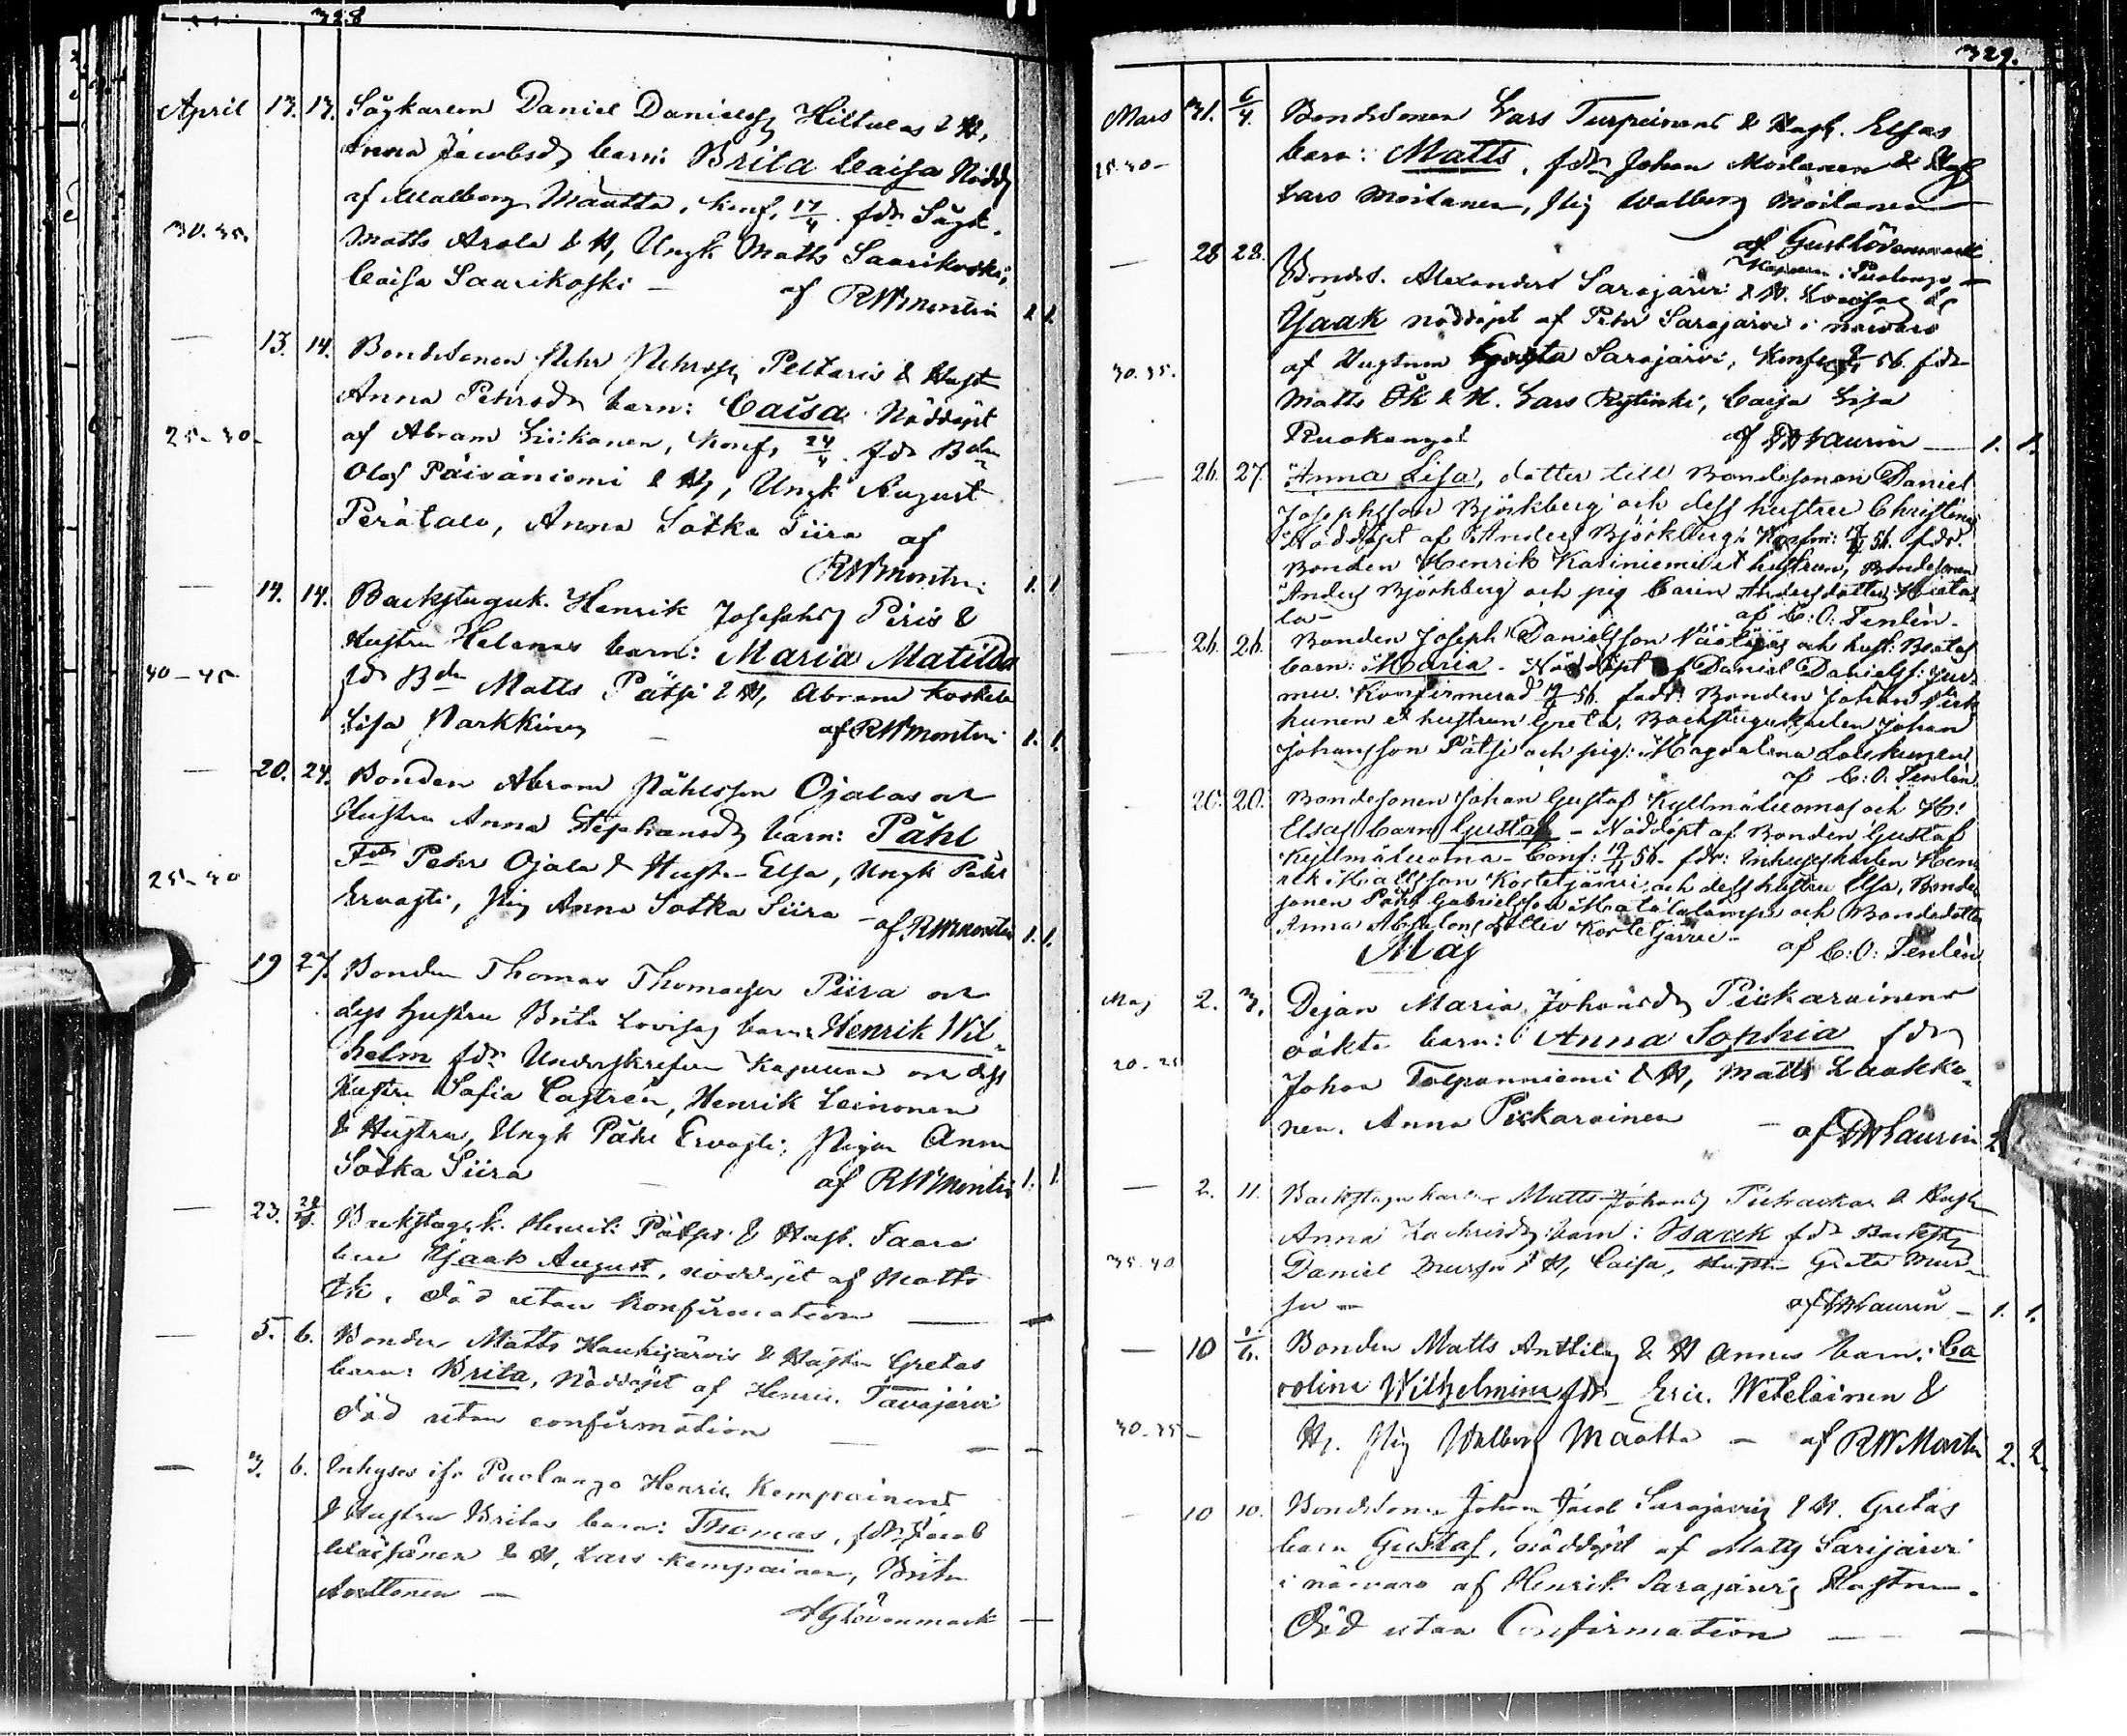 328
April 13. 13. Sågkarlen Daniel Danielss Hiltulas & H,
Anna Jacobsd barn: Brita Caisa Nödd
af Walborg Määttä, Konf. 17/4. fdr Sågk.
30.35. Matts Arola & H, Ungk Matts Saarikoski,
Caisa Saarikoski — af RWMontin 1 1.
— 13. 14. Bondesonen Pehr Pehrss Peltaris & Hust
Anna Petersd barn: Caisa Nöddöpt
25-30- af Abram Liikanen, Konf. 24/4. fdr Bdn
Olof Päiväniemi & H, Ungk August
Perätalo, Anna Sotka Siira af
RWMontin 1. 1
— 14. 14. Backstuguk. Henrik Josephs Piris &
Hustru Helenas barn: Maria Matilda
40-45 fdr Bdn Matts Pätsi & H, Abram Koskela
Lisa Parkkinen — af RWMontin 1. 1.
— 20. 24. Bonden Abram Påhlsson Ojalas och
Hustru Anna Stephansd barn: Påhl
Fdr Petr Ojala & Hustr Elsa, Ungk Påhl
25-40 Ervasti, Pig Anna Sotka Siira — af RWMontin 1. 1.
19 27. Bonden Thomas Thomasson Piira och
dess hustru Brita Lovisas barn: Henrik Wil-
helm fdr Underskrefven Kapellan och dess
Hustru Sofia Castrén, Henrik Leinonen
& Hustru, Ungk Påhl Ervasti, Pigan Anna
Sotka Siira — af RWMontin 1. 1.
— 23. Backstuguk. Henrik Pätsis & Hust. Saara
barn Isaak August, nöddöpt af Matts
Ök. död utan konfirmation —
— 5. 6. Bonden Matts Haukijärvis & Hustru Gretas
barn: Brita, Nöddöpt af Henric Tavajärvi
död utan confirmation —
— 3. 6. Inhyses ifr Puolango Henric Kempainens
& Hustru Britas barn: Thomas, fdr Jacob
Wäisänen & H, Lars Kempainen, Brita
Anttonen —
AGLövenmark —
329.
Mars 31. 6/4. Bondesonen Lars Turpeinens & Hust. Elsas
25.30- barn: Matts, fdr Johan Moilanen & Hust
Lars Moilanen, Pig Walborg Moilanen
af Gust Lövenmark
Kapellan i Puolango
— 28 28. Bondes. Alexanders Sarajärvi & H. Lovisas
Isaak nöddöpt af Petter Sarajärvi i närvaro
30.35. af Hustrun Greta Sarajärvi, Konf. 56. fdr
Matts Ök & H. Lars Rytinki, Caisa Lisa
Ruokangas af Laurin — 1. 1.
— 26. 27. Anna Lisa, dotter till Bondesonen Daniel
Josephsson Björkberg och dess hustru Christina
Nöddöpt af Anders Björkberg: Konfirm: 56. fdr.
Bonden Henrik Kariniemi et hustrun, Bondesonen
Anders Björkberg och pig Carin Andersdotter Hieta-
la- af C: O: Fenlén.
— 26. 26. Bonden Joseph Danielsson och hust: Beatas
barn: Maria - Nöddöpt af Daniel Danielss:
Konfirmerad 56. faddr: Bonden Johan
et hustrun Greta, Backstugukarlen Johan
Johansson Pätsi och pig: Magdalena Louhunen
af C: O: Fenlén.
20. 20. Bondesonen Johan Gustaf Kyllmäluomas och H:
Elsas barn Gustaf - Nöddöpt af Bonden Gustaf
Kyllmäluoma - Conf: 56- fdr: Inhyseskarlen Hen-
rik Mattsson Kortetjärvi och dess hustru Elsa, Bonde
sonen Påhl Gabrielsson och Bondedotter
Anna Absalonsdotter Kortetjärvi- af C: O: Fenlén
Maj
Maj 2. 3. Pejan Maria Johansd Pickarainens
20-25 oäkta barn: Anna Sophia fdr
Johan Tolpanniemi & H, Matts Laakko-
nen, Anna Pickarainen — af Laurin
— 2. 11. Backstugukarlen Matts Johans & Hustr
Anna Zachrisd barn: Isaak fdr Backst
35.40 Daniel Mursu & H, Caisa, Hustr Greta Mur-
su — af Laurin — 1. 1.
— 10 Bonden Matts Anttilas & H Annas barn: Ca
rolina Wilhelmina fdr Eric. Weteläinen &
30-35- H. Pig Walborg Määttä — af RWMontin 2. 2.
10 10. Bondesonen Johan Jacob Sarajärvis & H. Gretas
barn Gustaf, nöddöpt af Matts Sarijärvi
i närvaro af Henrik Sarajärvis Hustru.
Död utan Confirmation —